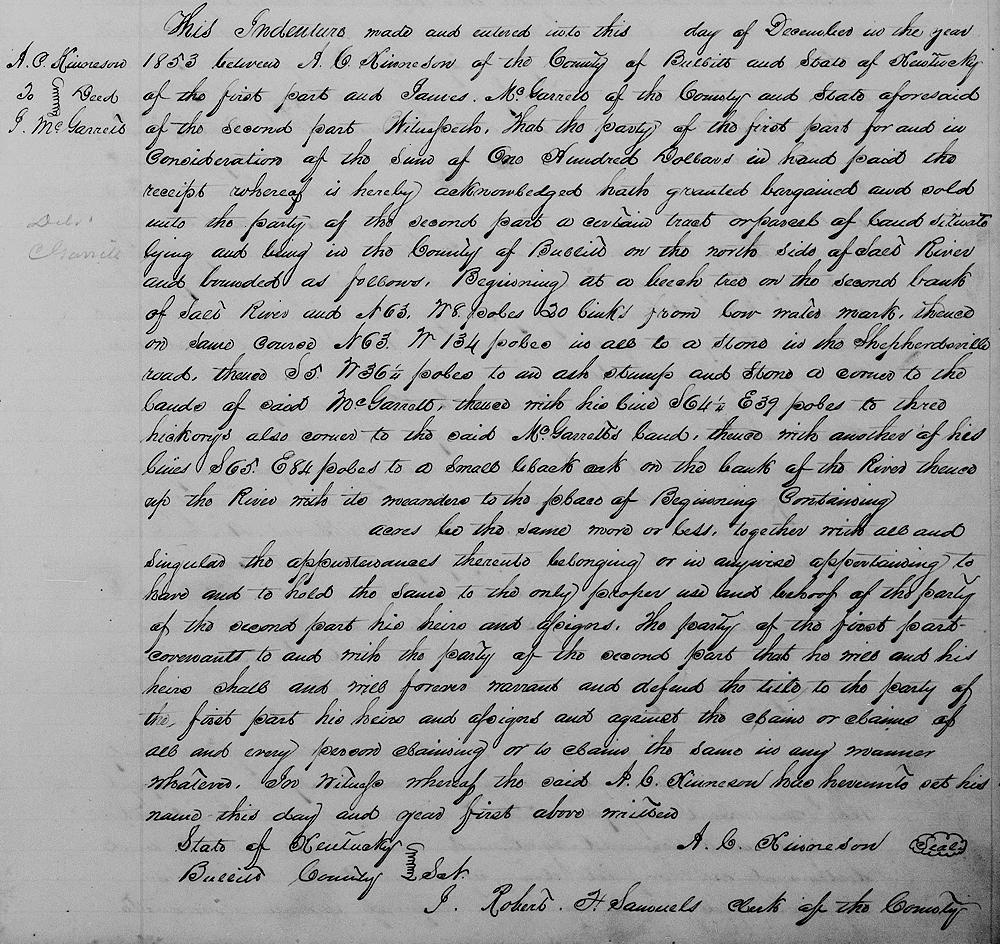 This Indenture made and entered into this day of December in the year
A. C. Kinneson
To Deed
J. McGarrett
1853 between A. C. Kinneson of the County of Bullitt and State of Kentucky
of the first part and James. McGarrett of the County and State aforesaid
of the second part Witnesseth, That the party of the first part for and in
Consideration of the Sum of One Hundred Dollars in hand paid the
receipt whereof is hereby acknowledged hath granted bargained and sold
unto the party of the second part a certain tract or parcel of land situate
lying and being in the County of Bullitt on the north side of Salt River
and bounded as follows. Beginning at a beech tree on the second bank
of Salt River and N63. W8. poles 20 link's from low water mark. thence
on same course N63. W 134 poles in all to a stone in the Shepherdsville
road. thence S5 W36¼ poles to an ash stump and stone a corner to the
lands of said McGarrett, thence with his line S64¼ E39 poles to three
hickorys also corner to the said McGarrett's land, thence with another of his
lines S65. E84 poles to a small black oak on the bank of the River thence
up the River with its meanders to the place of Beginning Containing
acres be the same more or less. together with all and
Singular the appurtenances thereto belonging or in anywise appertaining to
have and to hold the same to the only proper use and behoof of the party
of the second part his heirs and assigns. The party of the first part
covenants to and with the party of the second part that he will and his
heirs shall and will forever warrant and defend the title to the party of
the first part his heirs and assigns and against the claim or claims of
all and every person claiming or to claim the same in any manner
whatever. In Witness whereof the said A. C. Kinneson has hereunto set his
name this day and year first above written
State of Kentucky A. C. Kinneson Seal
Bullitt County Sct.
I. Robert. F Samuels clerk of the County